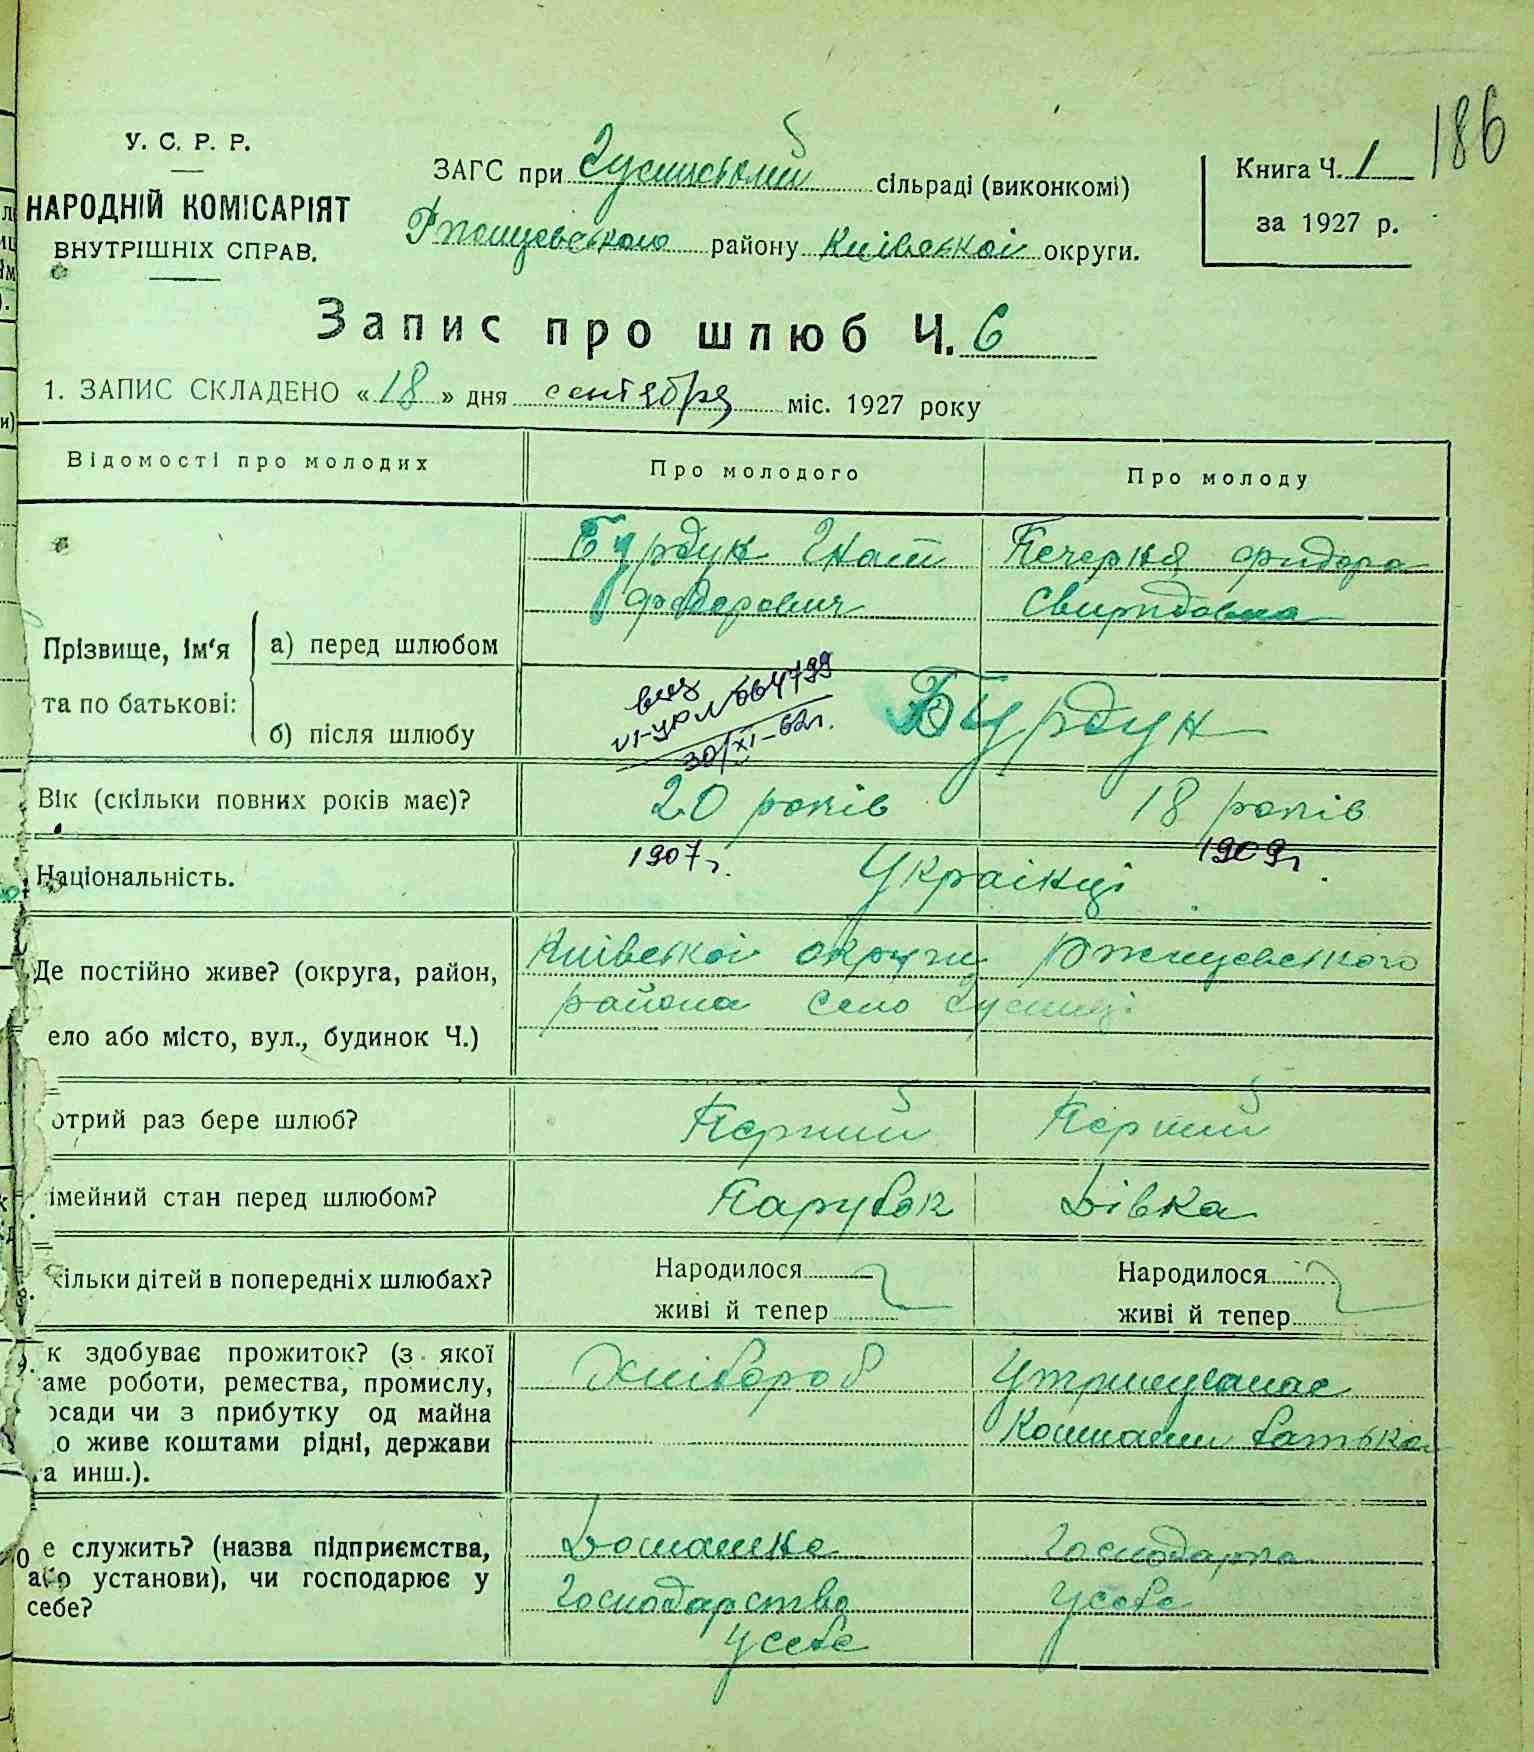 186
У. С. Р. Р.
НАРОДНІЙ КОМІСАРІЯТ
ВНУТРІШНІХ СПРАВ.
ЗАГС при сільраді (виконкомі)
району Київської округи.
Книга Ч. 1
за 1927 р.
Запис про шлюб Ч. 6
1. ЗАПИС СКЛАДЕНО «18» дня сентября міс. 1927 року
Відомості про молодих
Про молодого
Про молоду
Прізвище, ім'я
та по батькові:
а) перед шлюбом
Бурдук Гнат
Федорович
Печерня Фидора
Свиридовна
б) після шлюбу
Бурдук
VI-УЮ № 664799
30/XI-62г.
Вік (скільки повних років має)?
20 років
18 років
1907г.
1909г.
Національність.
Українці
Де постійно живе? (округа, район,
ело або місто, вул., будинок Ч.)
Київської округи Ржищевського
района село
отрий раз бере шлюб?
Перший
Перший
імейний стан перед шлюбом?
Парубок
Дівка
кільки дітей в попередніх шлюбах?
Народилося
живі й тепер
Народилося
живі й тепер
9. к здобуває прожиток? (з якої
аме роботи, ремества, промислу,
осади чи з прибутку од майна
о живе коштами рідні, держави
та инш.).
Хлібороб
Утримувалас
Коштами батька
10 е служить? (назва підприємства,
або установи), чи господарює у
себе?
Домашнє
Господарство
у себе
Господарка
у себе